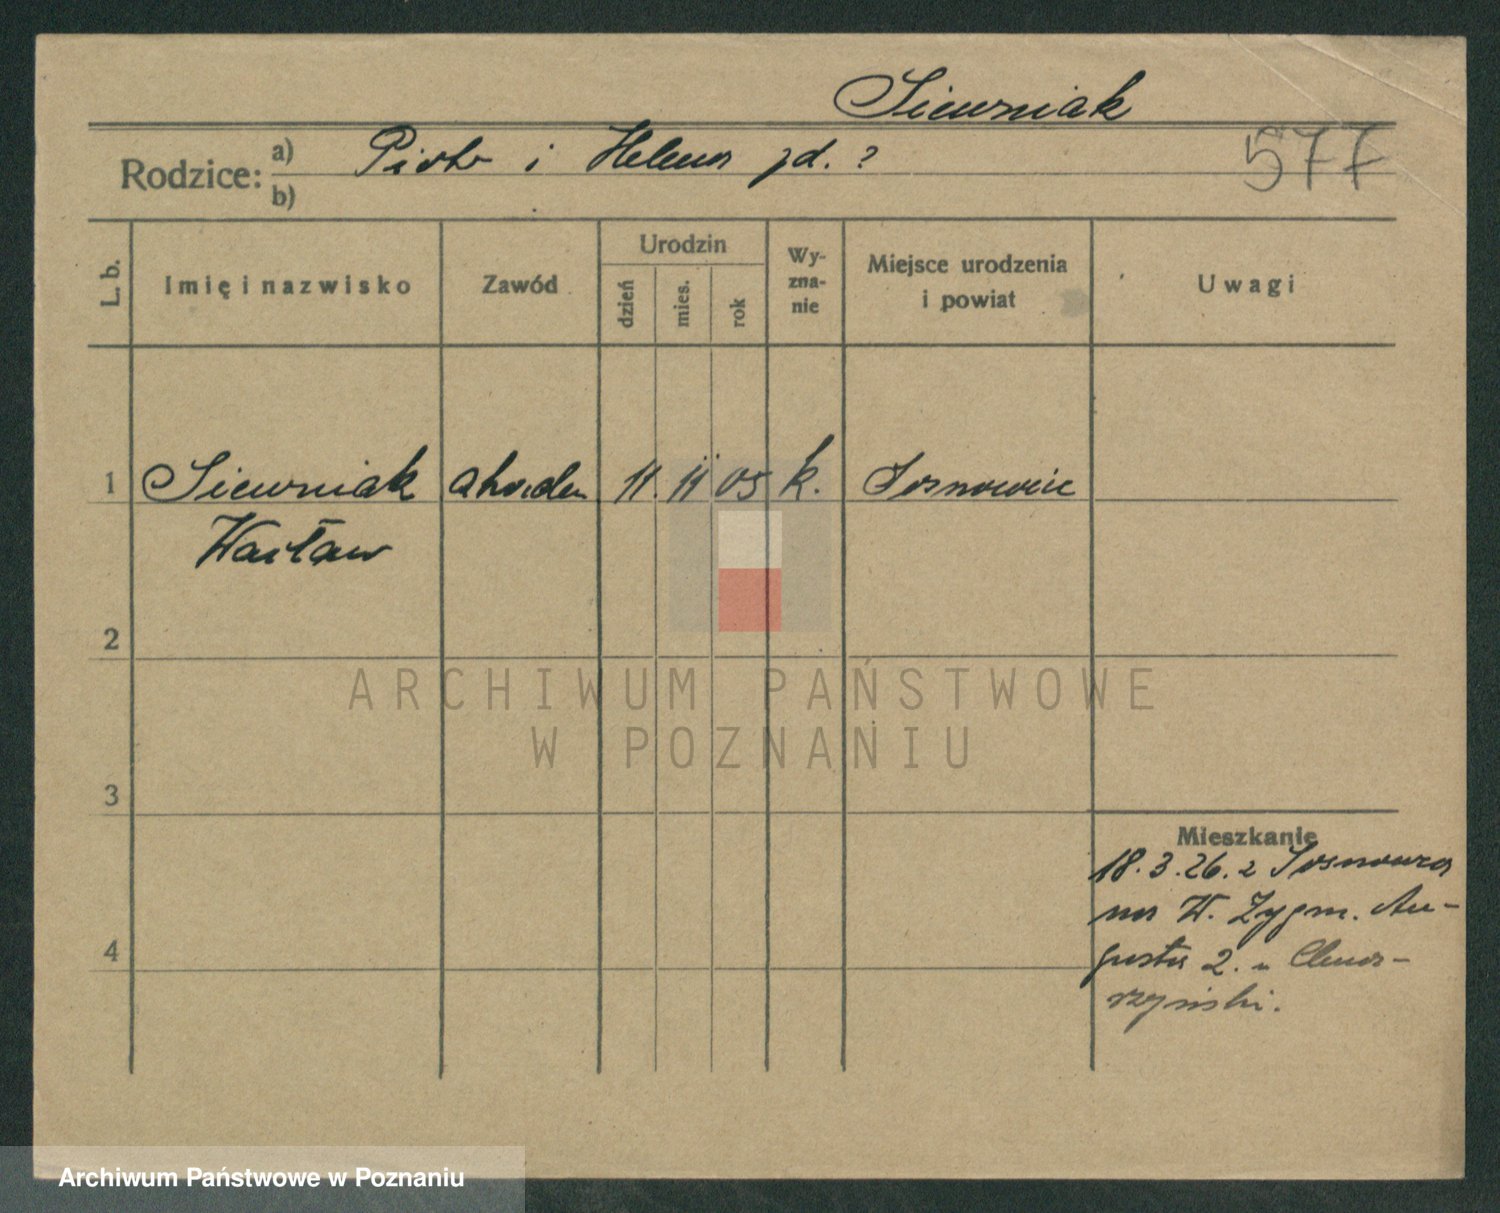 Siewniak
577
Rodzice:
a) Piotr i Helena zd. ?
b)
L. b.
Imię i nazwisko
Zawód
Urodzin
dzień
mies.
rok
Wy-
zna-
nie
Miejsce urodzenia
i powiat
Uwagi
1 Siewniak 11. 11 05 k. Sosnowiec
Wacław
2
3
4
Mieszkanie
18.3.26. z Sosnowca
na W. Zygm. Au-
gusta 2. u
ARCHIWUM PAŃSTWOWE
W POZNANIU
Archiwum Państwowe w Poznaniu